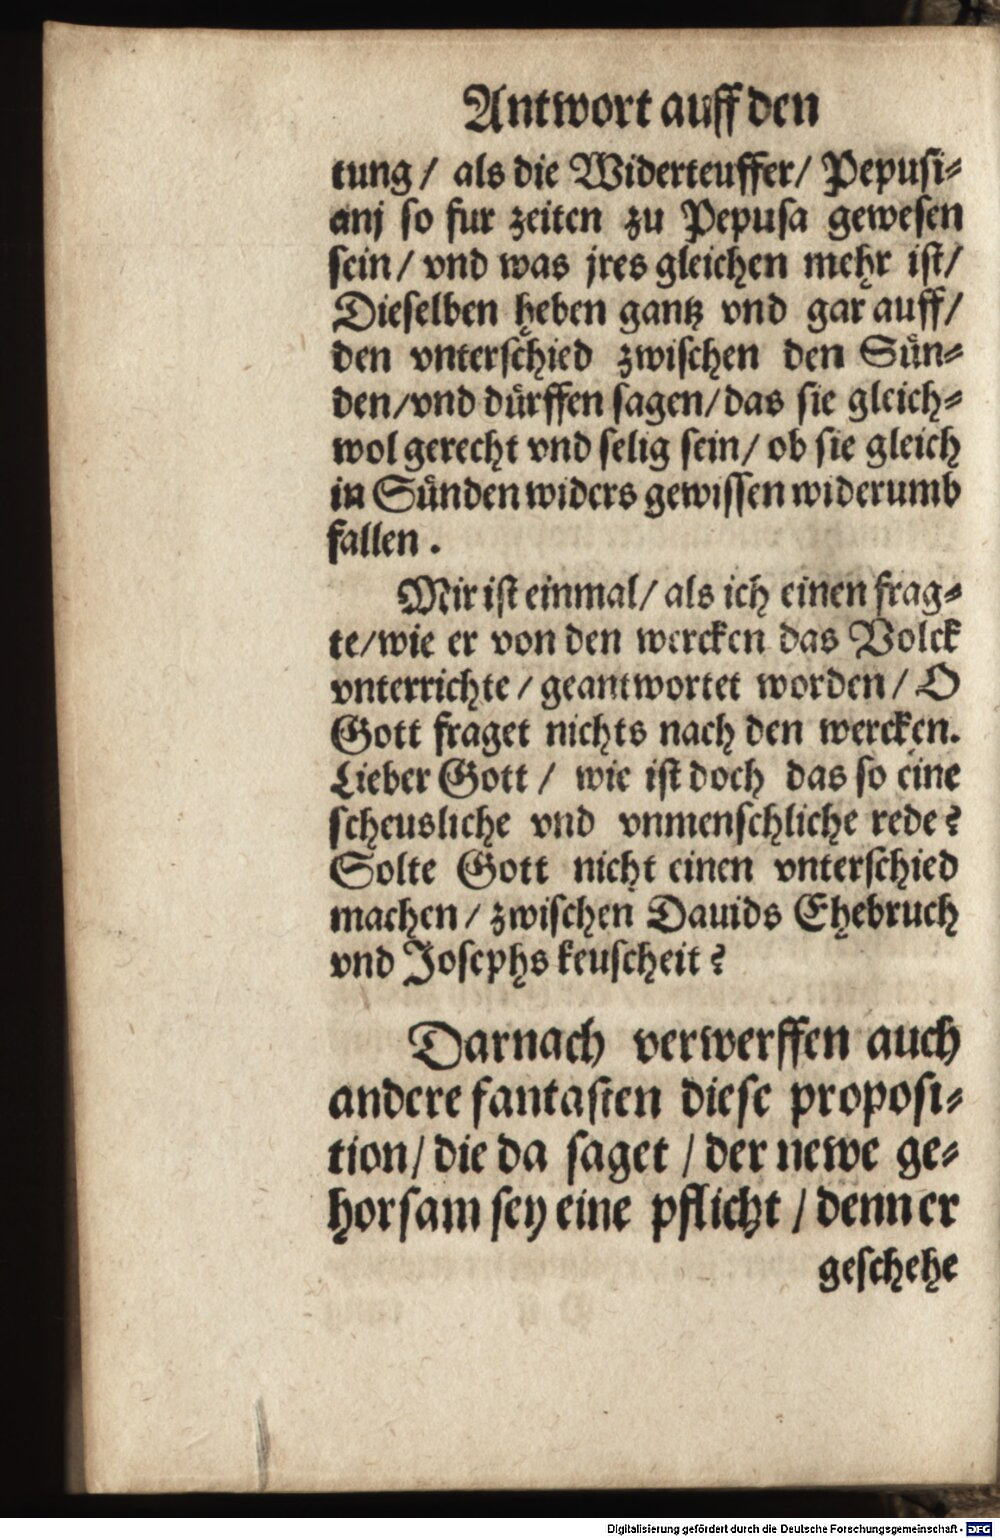 Antwort auff den
tung / als die Widerteuffer / Pepusi⸗
anj so fur zeiten zu Pepusa gewesen
sein / vnd was jres gleichen mehr ist /
Dieselben heben gantz vnd gar auff /
den vnterschied zwischen den Sün⸗
den / vnd dürffen sagen / das sie gleich⸗
wol gerecht vnd selig sein / ob sie gleich
in Sünden widers gewissen widerumb
fallen .
Mir ist einmal / als ich einen frag⸗
te / wie er von den wercken das Volck
vnterrichte / geantwortet worden / O
Gott fraget nichts nach den wercken.
Lieber Gott / wie ist doch das so eine
scheusliche vnd vnmenschliche rede ?
Solte Gott nicht einen vnterschied
machen / zwischen Dauids Ehebruch
vnd Josephs keuscheit ?
Darnach verwerffen auch
andere fantasten diese proposi⸗
tion / die da saget / der newe ge⸗
horsam sey eine pflicht / denn er
geschehe
Digitalisierung gefördert durch die Deutsche Forschungsgemeinschaft - DFG